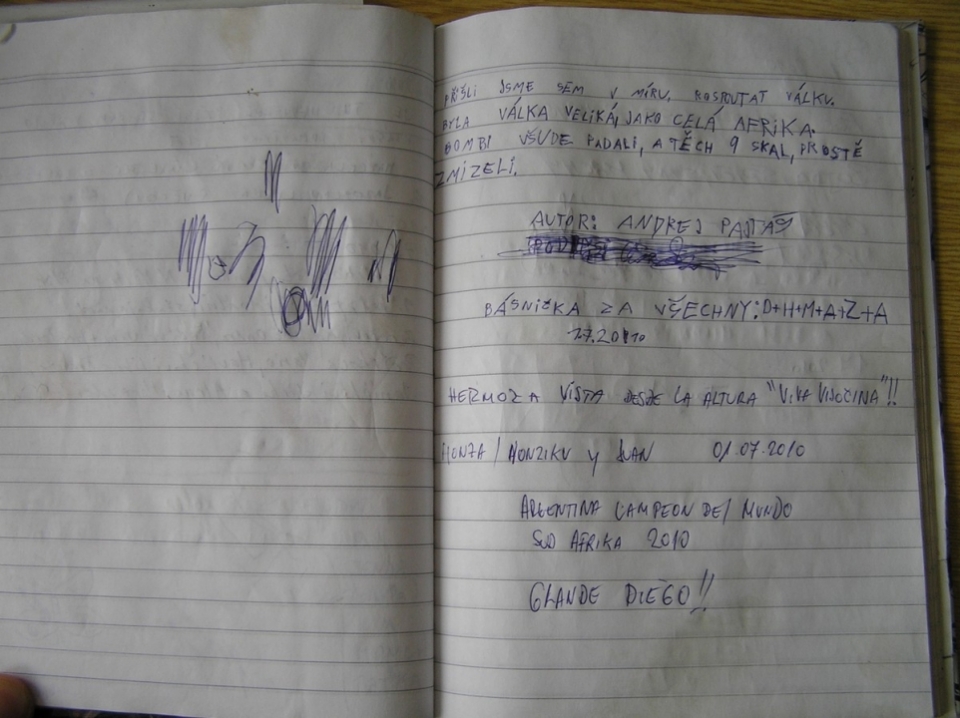 PŘIŠLI JSME SEM V MÍRU, ROSPOUTAT VÁLKU.
BYLA VÁLKA VELIKÁ, JAKO CELÁ AFRIKA.
BOMBI VŠUDE PADALI, A TĚCH 9 SKAL, PROSTĚ
ZMIZELI.
AUTOR: ANDREJ
BÁSNIČKA ZA VŠECHNY: D+H+M+A+Z+A
1.7.2010
HERMOZA VISTA DESDE LA ALTURA "VIVA VISOČINA"!!
HONZA / HONZIKU Y JUAN 01.07.2010
ARGENTINA CAMPEON DEL MUNDO
SUD AFRIKA 2010
GLANDE DIEGO!!